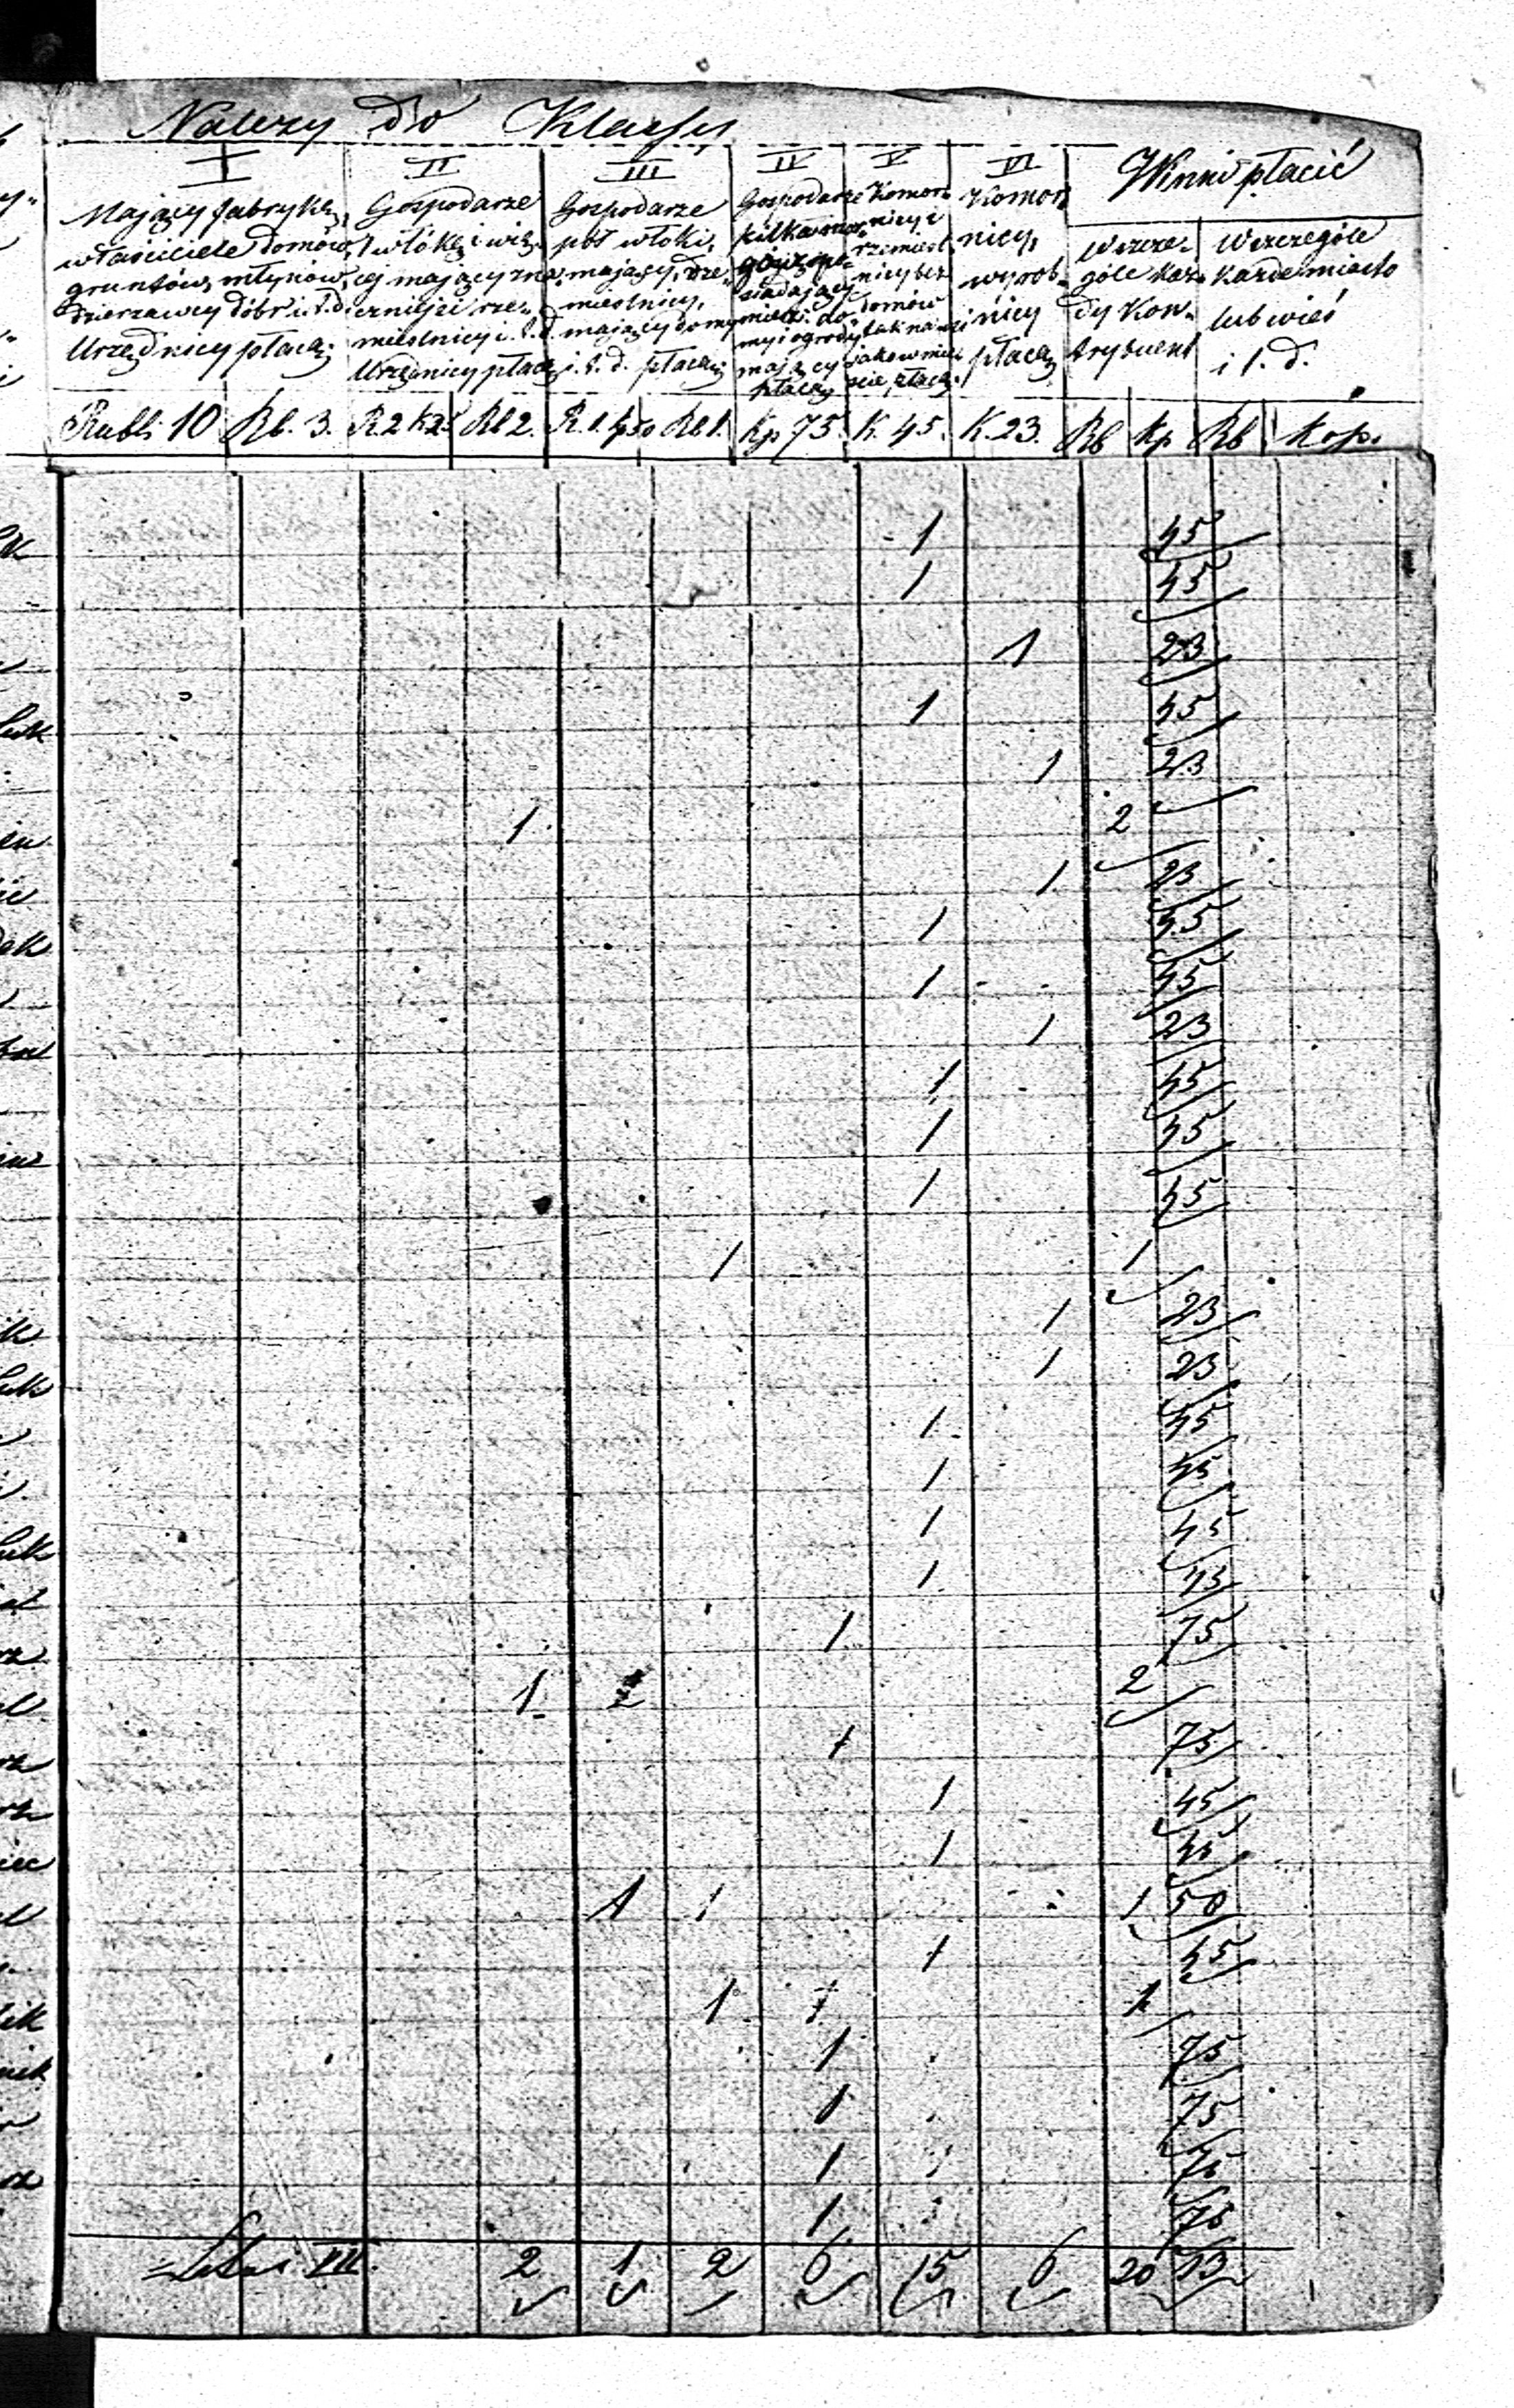 Należy do Klassy
I II III IV V VI Winni płacić
Mający fabrykę, właściciele domów, gruntów, młynów, dzierzawcy dóbr i t. d. Urzędnicy płacą;
Gospodarze 1 włókę i więcej mający znaczniejsi rzemieslnicy i. t. d. Urzędnicy płacą
Gospodarze pół włóki, mający, rzemieslnicy, mający domy i. t. d. płacą;
Gospodarze kilka posiadający domy i ogrody mający płacą
Komornicy i rzemieslnicy bez domów tak na wsi jako w mieście, płacą.
Komornicy, wyrobnicy płacą
Wszczególe każdy Kontrybuent
Wszczególe każde miasto lub wieś i t. d.
Rubli 10 Rb. 3. R. 2 K 25 Rb 2. R. 1. kp 50 Rb 1. Kp 75. K. 45. K. 23. Rb Kp Rb Kop.
1 45
1 45
1 23
1 45
1 23
1 2
1 23
1 45
1 45
1 23
1 45
1 45
1 45
1 1
1 23
1 23
1 45
1 45
1 45
1 45
1 75
1 2
1 75
1 45
1 45
1 1 1 50
1 45
1 1 1
1 75
1 75
1 75
1 75
2 1 2 6 15 6 20 13